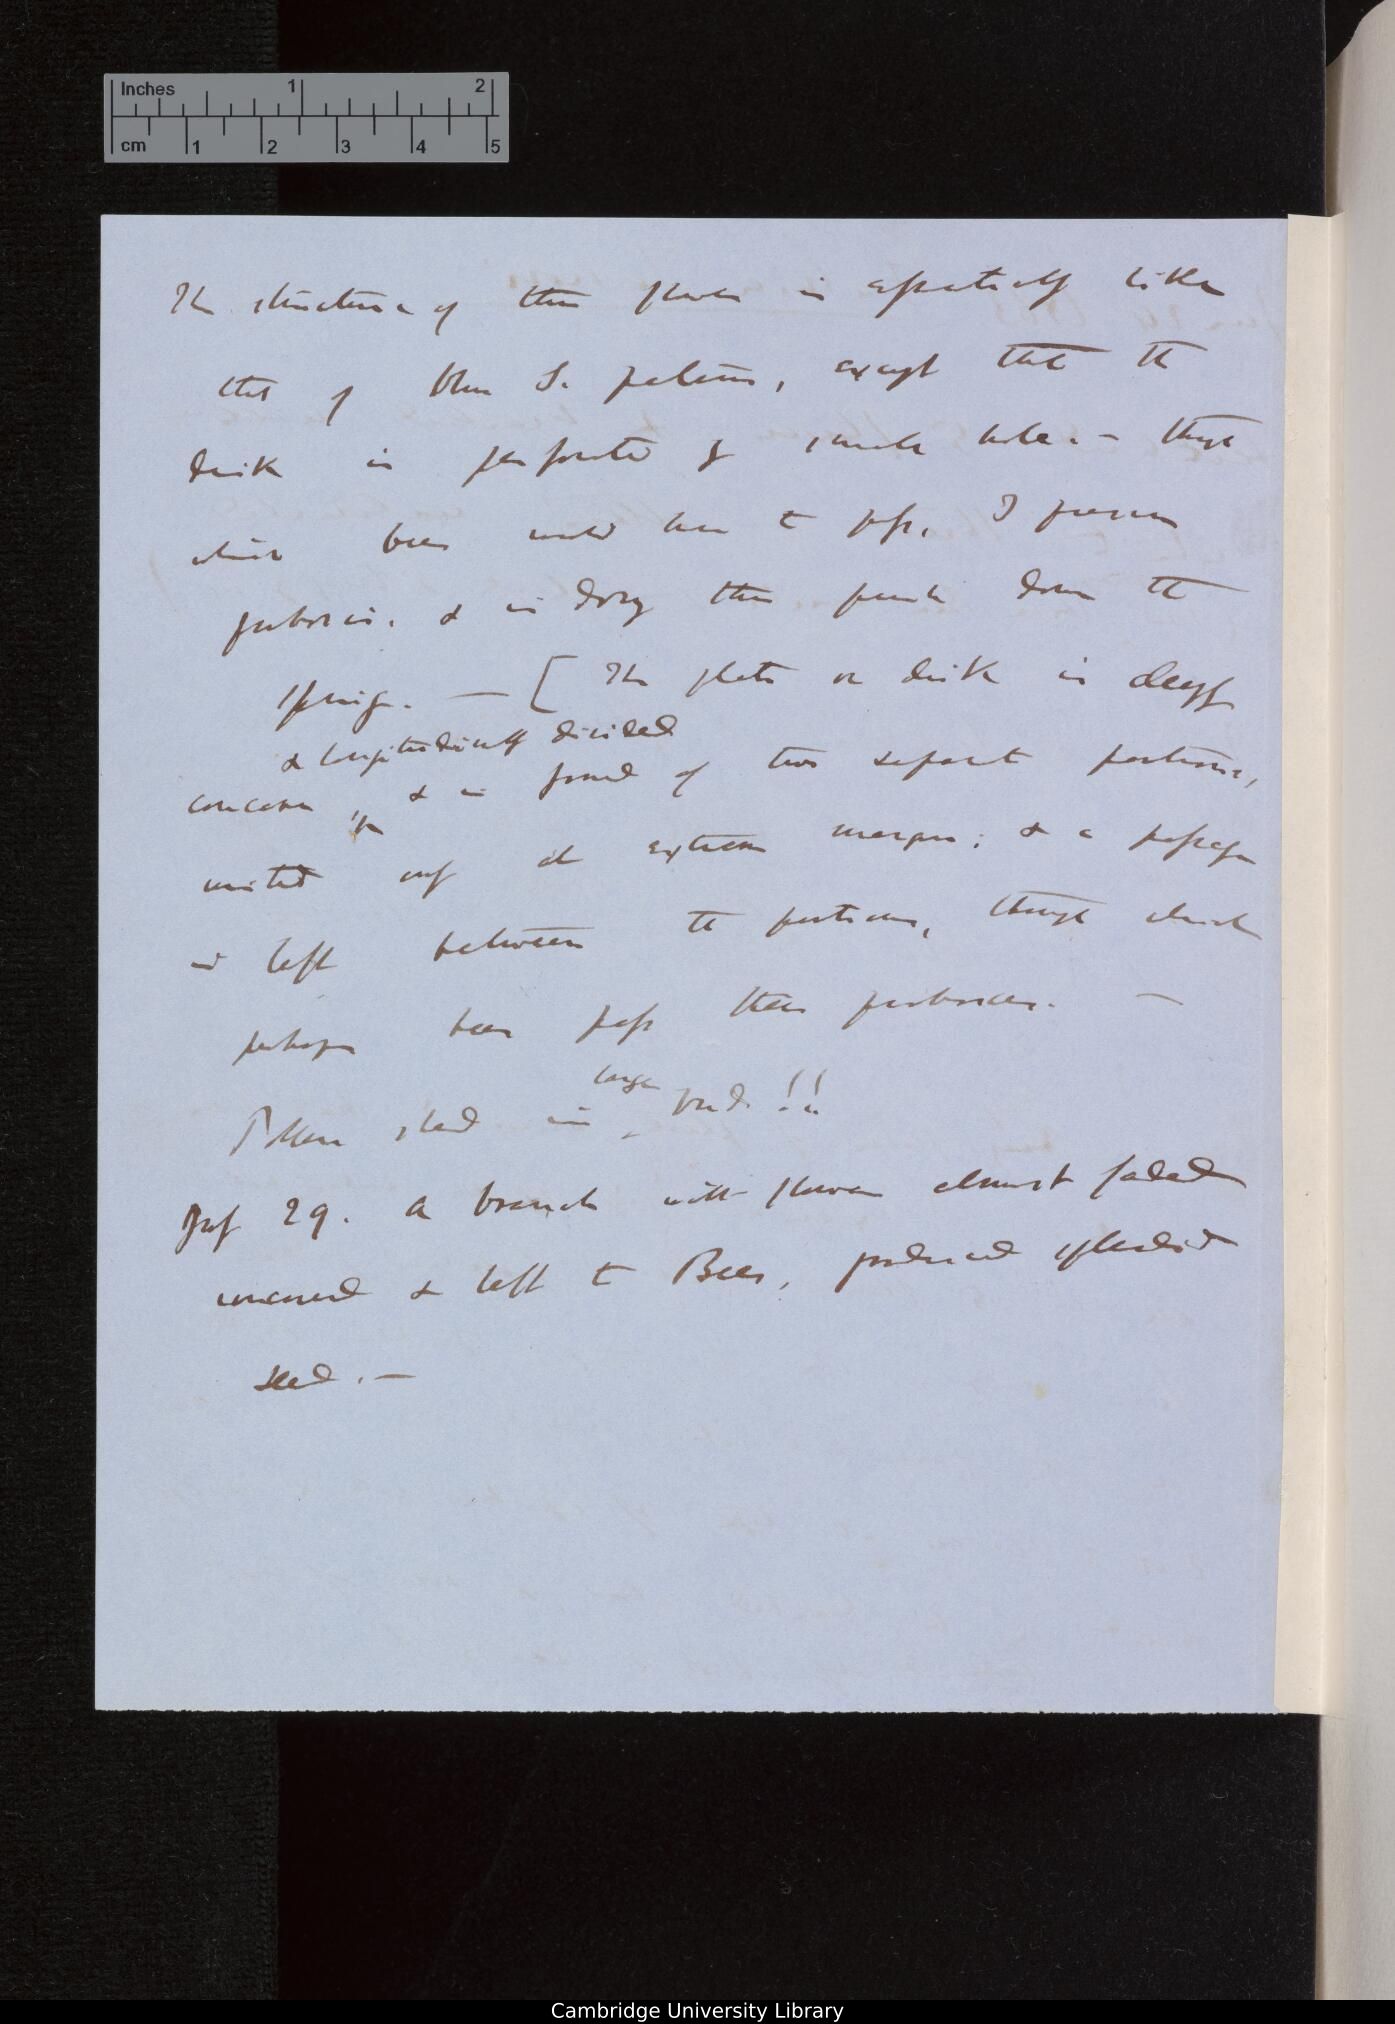 Inches 1 2
cm 1 2 3 4 5
The structure of this flower is essentially like
that of blue S. , except that the
disk is perforated by small hole. — through
which bees would have to pass, I presume
proboscis. & in doing this push down the
spring. — [ The plate or disk is deeply
& longitudinally divided
concave & is formed of two separate portions,
united only at extreme margin; & a passage
is left between the portions, through which
perhaps bees pass their proboscis. —
large
Pollen shed in bud!!
July 29. A branch with flowers almost faded
uncovered & left to Bees, produced splendid
seed. —
Cambridge University Library